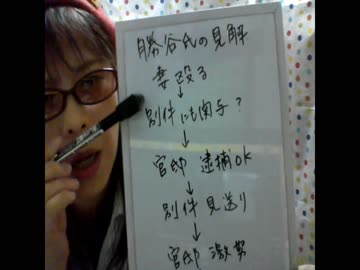 勝谷氏の見解
妻殴る
↓
別件にも関与？
↓
官邸 逮捕OK
↓
別件見送り
↓
官邸 激怒